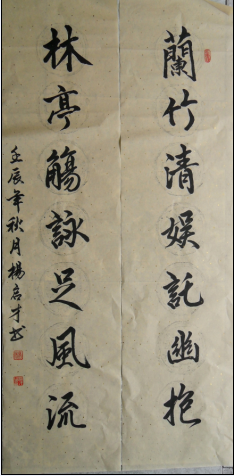 蘭竹清娛託幽抱
林亭觴詠足風流
壬辰年秋月楊啟才书